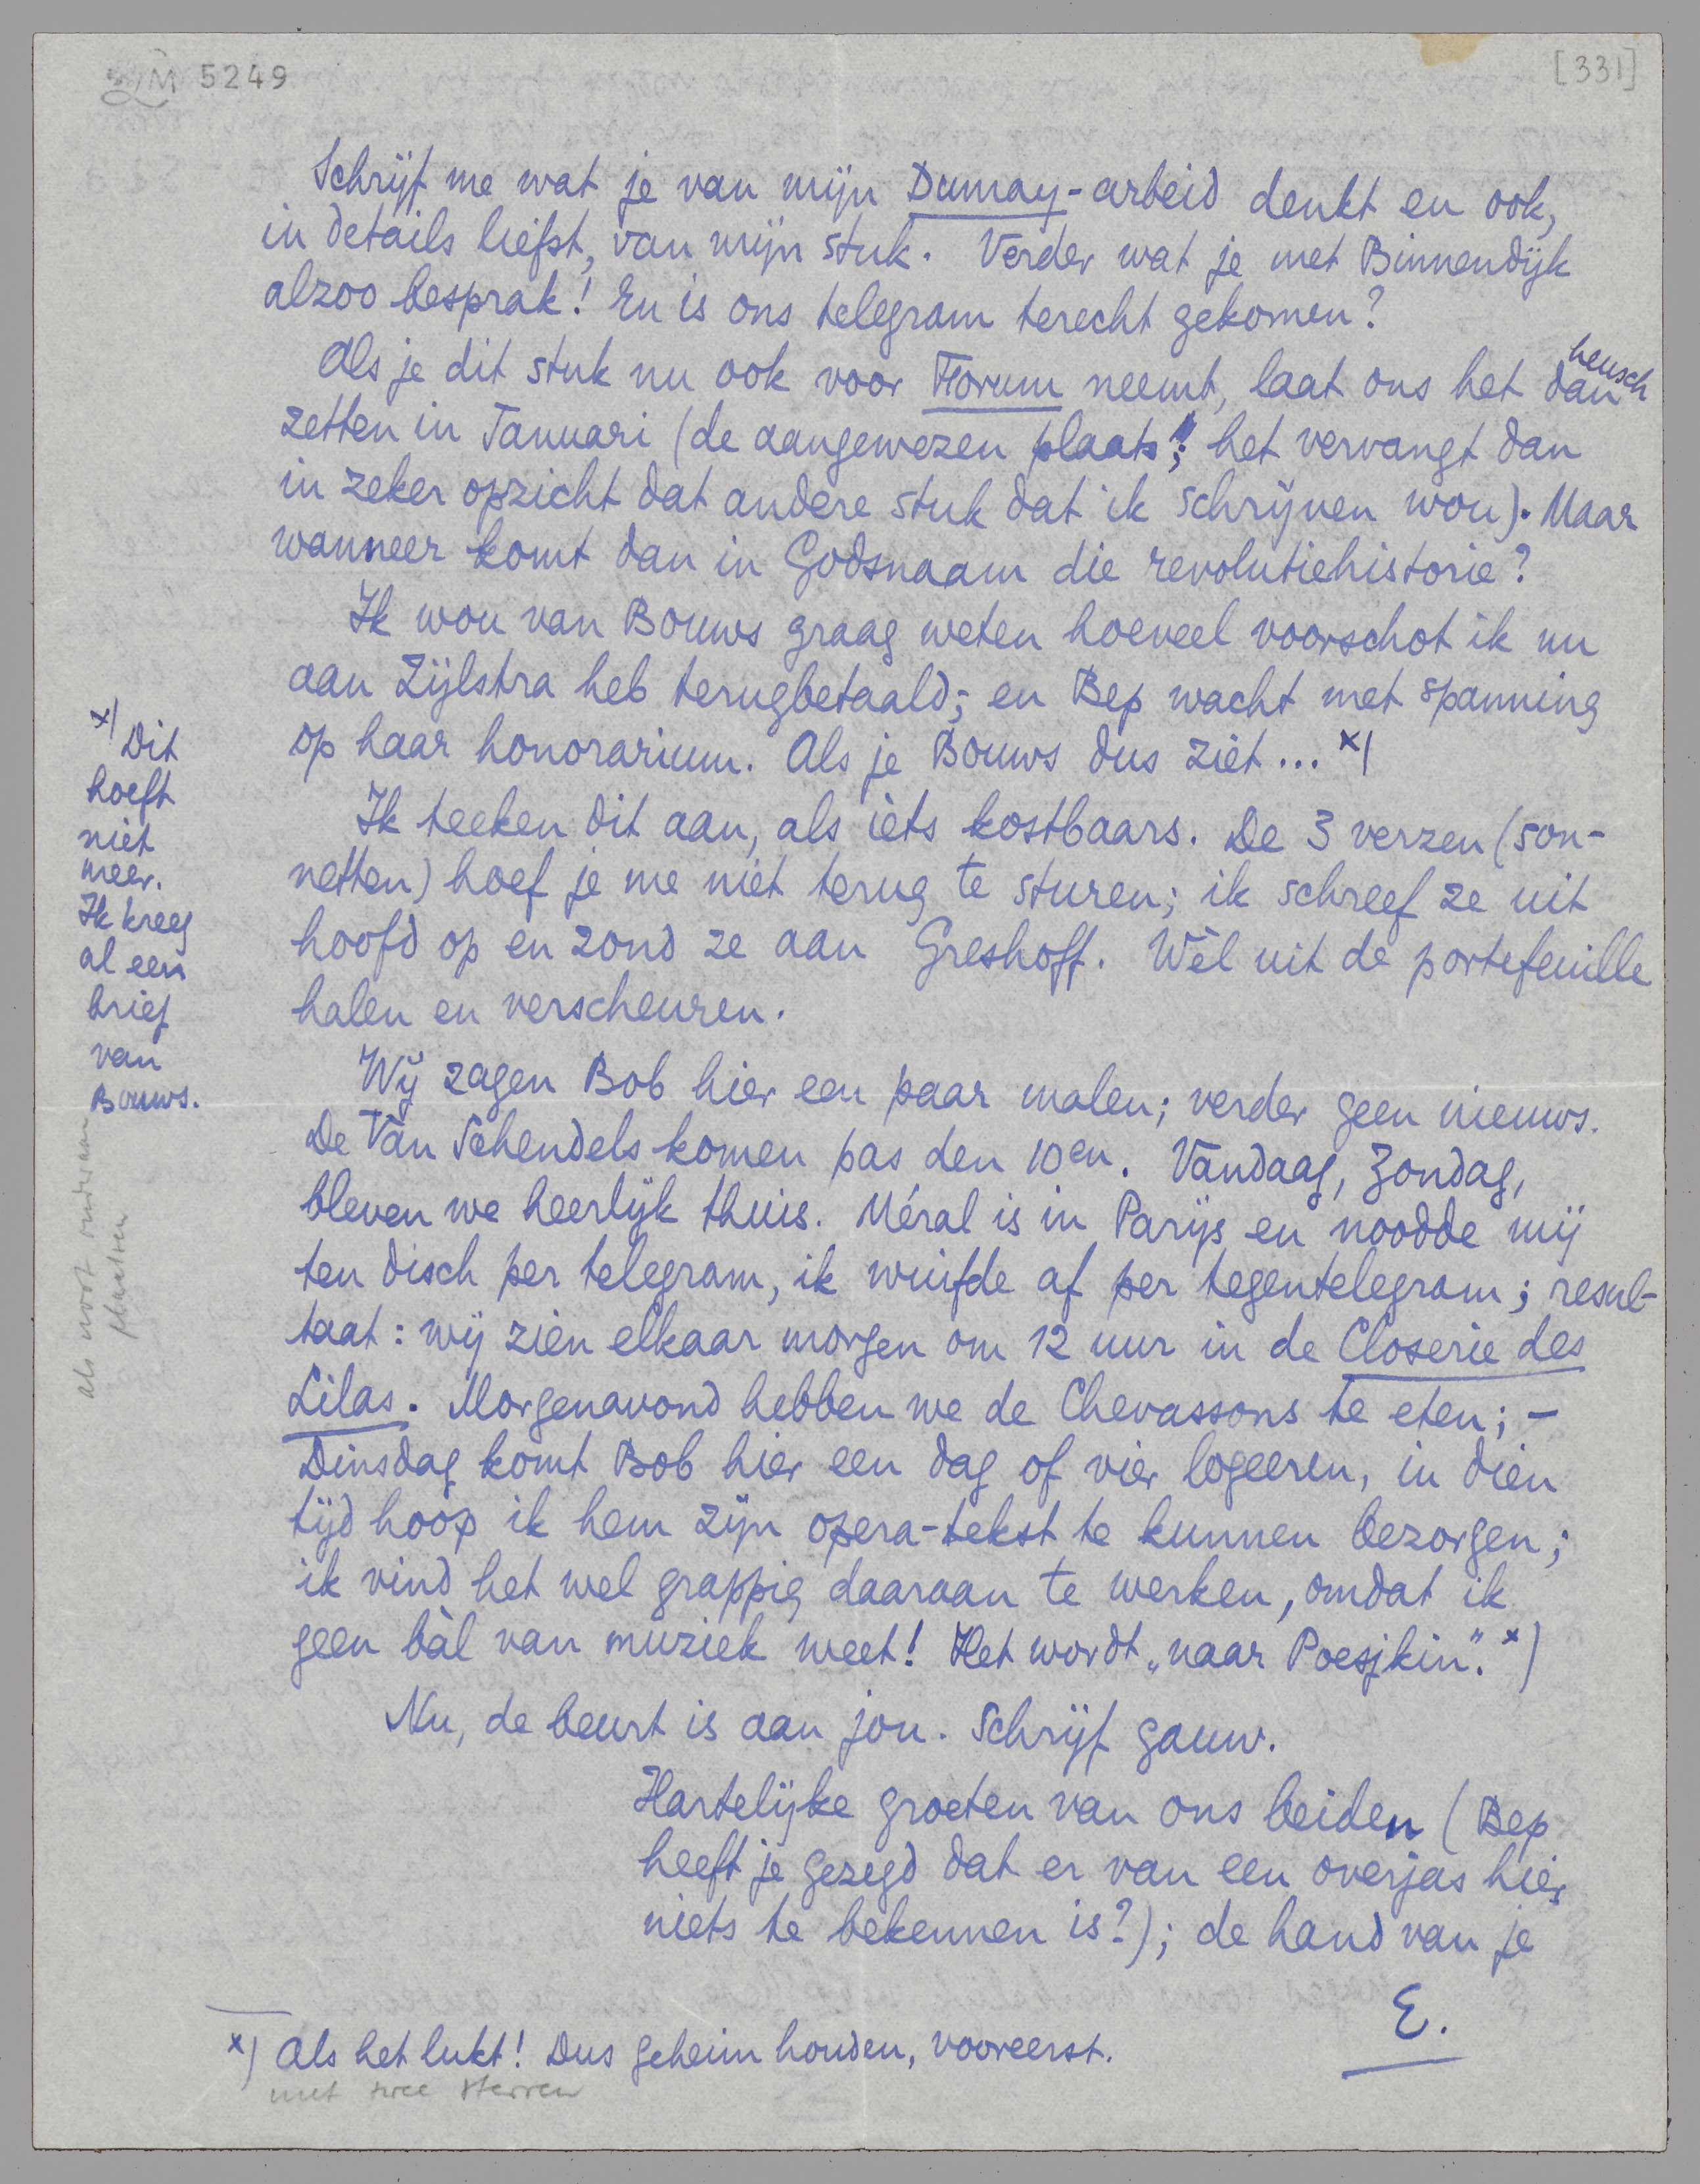 M 5249
[331]
Schrijf me wat je van mijn Dumay-arbeid denkt en ook,
in details liefst, van mijn stuk. Verder wat je met Binnendijk
alzoo besprak! En is ons telegram terecht gekomen?
Als je dit stuk nu ook voor Forum neemt, laat ons het dan heusch
zetten in Januari (de aangewezen plaats!; het vervangt dan
in zeker opzicht dat andere stuk dat ik schrijven wou). Maar
wanneer komt dan in Godsnaam die revolutiehistorie?
Ik wou van Bouws graag weten hoeveel voorschot ik nu
aan Zijlstra heb terugbetaald; en Bep wacht met spanning
op haar honorarium. Als je Bouws dus ziet... x)
Ik teeken dit aan, als iets kostbaars. De 3 verzen (son-
netten) hoef je me niet terug te sturen; ik schreef ze uit
hoofd op en zond ze aan Greshoff. Wèl uit de portefeuille
halen en verscheuren.
Wij zagen Bob hier een paar malen; verder geen nieuws.
De Van Schendels komen pas den 10en. Vandaag, Zondag,
bleven we heerlijk thuis. Méral is in Parijs en noodde mij
ten disch per telegram, ik wuifde af per tegentelegram; resul-
taat: wij zien elkaar morgen om 12 uur in de Closerie des
Lilas. Morgenavond hebben we de Chevassons te eten; -
Dinsdag komt Bob hier een dag of vier logeeren, in dien
tijd hoop ik hem zijn opera-tekst te kunnen bezorgen;
ik vind het wel grappig daaraan te werken, omdat ik
geen bàl van muziek weet! Het wordt „naar Poesjkin". x)
Nu, de beurt is aan jou. Schrijf gauw.
Hartelijke groeten van ons beiden (Bep
heeft je gezegd dat er van een overjas hier
niets te bekennen is?); de hand van je
E.
x) Als het lukt! Dus geheim houden, vooreerst.
met twee sterren
x) Dit
hoeft
niet
meer.
Ik kreeg
al een
brief
van
Bouws.
als noot onderaan
plaatsen